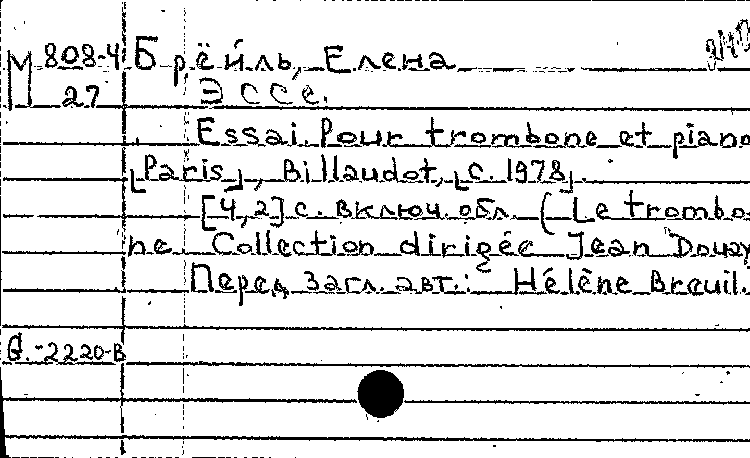 М 808-4 Брёйль, Елена
27 Эссе.
Essai. Pour trombone et piano
[Paris], Billaudot, [c. 1978].
[4,2] с. включ. обл. (Le trombo-
ne Collection dirigée Jean Douay
Перед загл. авт.: Hélène Breuil.
G.-2220-В